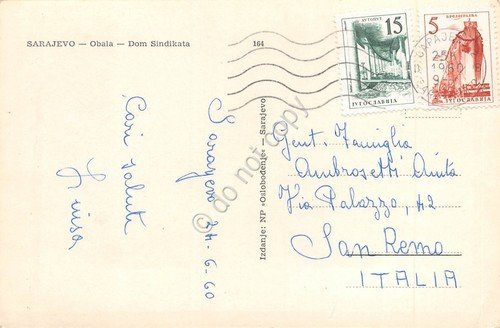 SARAJEVO — Obala — Dom Sindikata
164
15
JYGOCLABNJA
5
JYGOCLABNJA
25
1960
Cari saluti
Luisa
Sarajevo 24-6-60
Izdanje: NP »Oslobođenje« — Sarajevo
do not copy
Gent. Famiglia
Ambrosetti Anita
Via Palazzo, 42
San Remo
ITALIA